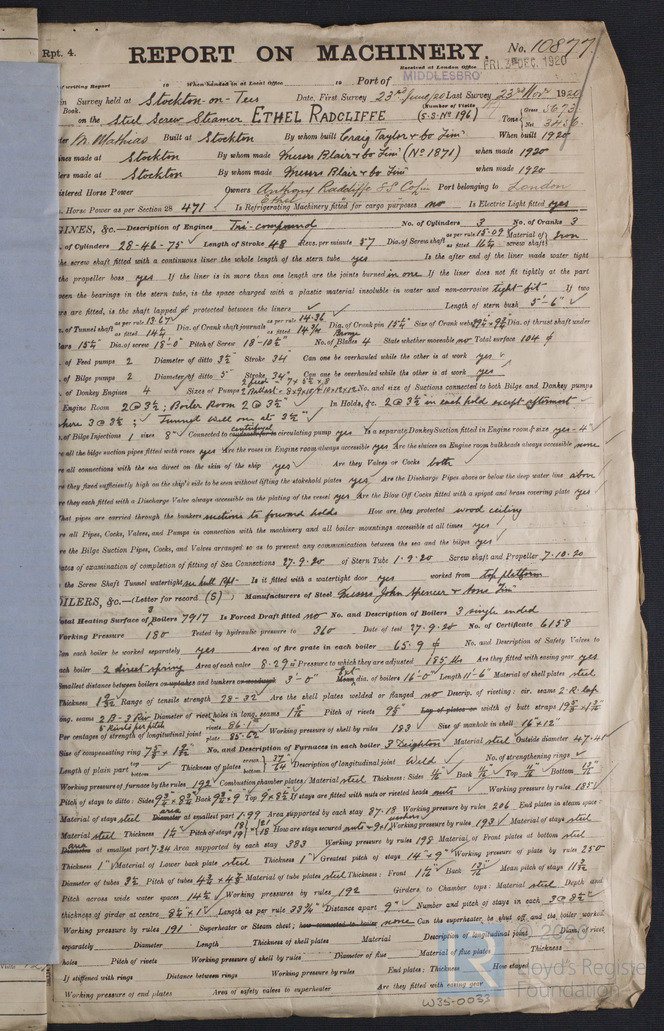 Rpt. 4.
REPORT ON MACHINERY.
No. 10877
Received at London Office
FRI. 3 DEC. 1920
of writing Report 19 When handed in at Local Office 19 Port of MIDDLESBRO'
in Survey held at Stockton-on-Tees Date, First Survey 23rd June/20 Last Survey 23rd Nov 1920
Book. (Number of Visits
on the Steel Screw Steamer ETHEL RADCLIFFE (S.S. No 196) Tons Gross 5673 Net 3456
M. Mathias Built at Stockton By whom built Craig Taylor & Co Lim When built 1920
ines made at Stockton By whom made Messrs Blair & Co Lim (No 1871) when made 1920
lers made at Stockton By whom made Messrs Blair & Co Lim when made 1920
istered Horse Power Owners Anthony Radcliffe SS Co Lim Port belonging to London
Horse Power as per Section 28 471 Is Refrigerating Machinery fitted for cargo purposes no Is Electric Light fitted yes
GINES, &c.—Description of Engines Tri-compound No. of Cylinders 3 No. of Cranks 3
of Cylinders 28-46-75 Length of Stroke 48 Revs. per minute 57 Dia. of Screw shaft as per rule 15.09 as fitted Material of screw shaft Iron
he screw shaft fitted with a continuous liner the whole length of the stern tube yes Is the after end of the liner made water tight
the propeller boss yes If the liner is in more than one length are the joints burned in one If the liner does not fit tightly at the part
ween the bearings in the stern tube, is the space charged with a plastic material insoluble in water and non-corrosive tight-fit If two
rs are fitted, is the shaft lapped or protected between the liners Length of stern bush 5'-6"
of Tunnel shaft as per rule 13.67 as fitted 14¼ Dia. of Crank shaft journals as per rule 14.36 as fitted Dia. of Crank pin 15¼" Size of Crank webs Dia. of thrust shaft under
lars 15¼" Dia. of screw 18'-0" Pitch of Screw 18'-10½" No. of Blades 4 State whether moveable no Total surface 104
of Feed pumps 2 Diameter of ditto 3½" Stroke 34" Can one be overhauled while the other is at work yes
of Bilge pumps 2 Diameter of ditto 5" Stroke 34" Can one be overhauled while the other is at work yes
of Donkey Engines 4 Sizes of Pumps No. and size of Suctions connected to both Bilge and Donkey pumps
Engine Room 2 @ 3½"; Boiler Room 2 @ 3½" In Holds, &c. 2 @ 3½" in each hold except aftermost
where 3 @ 3½"; Tunnel Well one at 3½"
of Bilge Injections 1 sizes 8" Connected to centrifugal circulating pump yes Is a separate Donkey Suction fitted in Engine room & size yes - 4"
re all the bilge suction pipes fitted with roses yes Are the roses in Engine room always accessible yes Are the sluices on Engine room bulkheads always accessible none
re all connections with the sea direct on the skin of the ship yes Are they Valves or Cocks both
re they fixed sufficiently high on the ship's side to be seen without lifting the stokehold plates yes Are the Discharge Pipes above or below the deep water line above
re they each fitted with a Discharge Valve always accessible on the plating of the vessel yes Are the Blow Off Cocks fitted with a spigot and brass covering plate yes
hat pipes are carried through the bunkers suctions to forward holds How are they protected wood ceiling
re all Pipes, Cocks, Valves, and Pumps in connection with the machinery and all boiler mountings accessible at all times yes
re the Bilge Suction Pipes, Cocks, and Valves arranged so as to prevent any communication between the sea and the bilges yes
ates of examination of completion of fitting of Sea Connections 27.9.20 of Stern Tube 1.9.20 Screw shaft and Propeller 7.10.20
the Screw Shaft Tunnel watertight see hull Rpt. Is it fitted with a watertight door yes worked from top platform
OILERS, &c.—(Letter for record (S)) Manufacturers of Steel Messrs John Spencer & Sons Lim
otal Heating Surface of Boilers 7917 Is Forced Draft fitted no No. and Description of Boilers 3 single ended
Working Pressure 180 Tested by hydraulic pressure to 360 Date of test 27.9.20 No. of Certificate 6158
an each boiler be worked separately yes Area of fire grate in each boiler 65.9 No. and Description of Safety Valves to
each boiler 2 direct spring Area of each valve 8.29 Pressure to which they are adjusted 185 lbs Are they fitted with easing gear yes
Smallest distance between boilers or uptakes and bunkers or woodwork 3'-0" Ext. dia. of boilers 16'-0" Length 11'-6" Material of shell plates steel
Thickness 1 9/32 Range of tensile strength 28-32 Are the shell plates welded or flanged no Descrip. of riveting: cir. seams 2.R. lap
long. seams Diameter of rivet holes in long. seams Pitch of rivets Lap of plates or width of butt straps
Per centages of strength of longitudinal joint rivets 86.1 plate 85.62 Working pressure of shell by rules 183 Size of manhole in shell 16" x 12"
Size of compensating ring No. and Description of Furnaces in each boiler 3 Deighton Material steel Outside diameter 47.4
Length of plain part top bottom Thickness of plates crown bottom 37/64 Description of longitudinal joint Weld No. of strengthening rings
Working pressure of furnace by the rules 192 Combustion chamber plates: Material steel Thickness: Sides Back Top Bottom
Pitch of stays to ditto: Sides Back Top If stays are fitted with nuts or riveted heads nuts Working pressure by rules 185
Material of stays steel area at smallest part 1.99 Area supported by each stay 87.18 Working pressure by rules 206 End plates in steam space:
Material steel Thickness Pitch of stays How are stays secured Working pressure by rules 193 Material of stays steel
area at smallest part 7.24 Area supported by each stay 383 Working pressure by rules 198 Material of Front plates at bottom steel
Thickness 1" Material of Lower back plate steel Thickness 1" Greatest pitch of stays 14" x 9" Working pressure of plate by rules 250
Diameter of tubes 3½ Pitch of tubes Material of tube plates steel Thickness: Front Back Mean pitch of stays
Pitch across wide water spaces 14½" Working pressures by rules 192 Girders to Chamber tops: Material steel Depth and
thickness of girder at centre Length as per rule Distance apart 9" Number and pitch of stays in each 3 @ 8½"
Working pressure by rules 191 Superheater or Steam chest; how connected to boiler none Can the superheater be shut off and the boiler worked
separately Diameter Length Thickness of shell plates Material Description of longitudinal joint Diam. of rivet
holes Pitch of rivets Working pressure of shell by rules Diameter of flue Material of flue plates Thickness
If stiffened with rings Distance between rings Working pressure by rules End plates: Thickness How stayed
Working pressure of end plates Area of safety valves to superheater Are they fitted with easing gear
© 2020
Lloyd's Register
Foundation
W35-0033